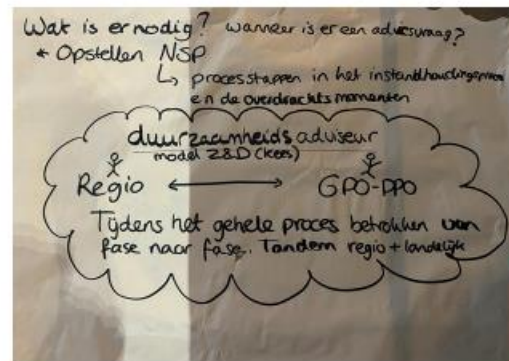 Wat is er nodig? wanneer is er een adviesvraag?
* Opstellen NSP
↳ processtappen in het instandhoudingsproces
en de overdrachtsmomenten
duurzaamheidsadviseur
model Z&D (Kees)
Regio ⟷ GPO-PPO
Tijdens het gehele proces betrokken van
fase naar fase. Tandem regio + landelijk